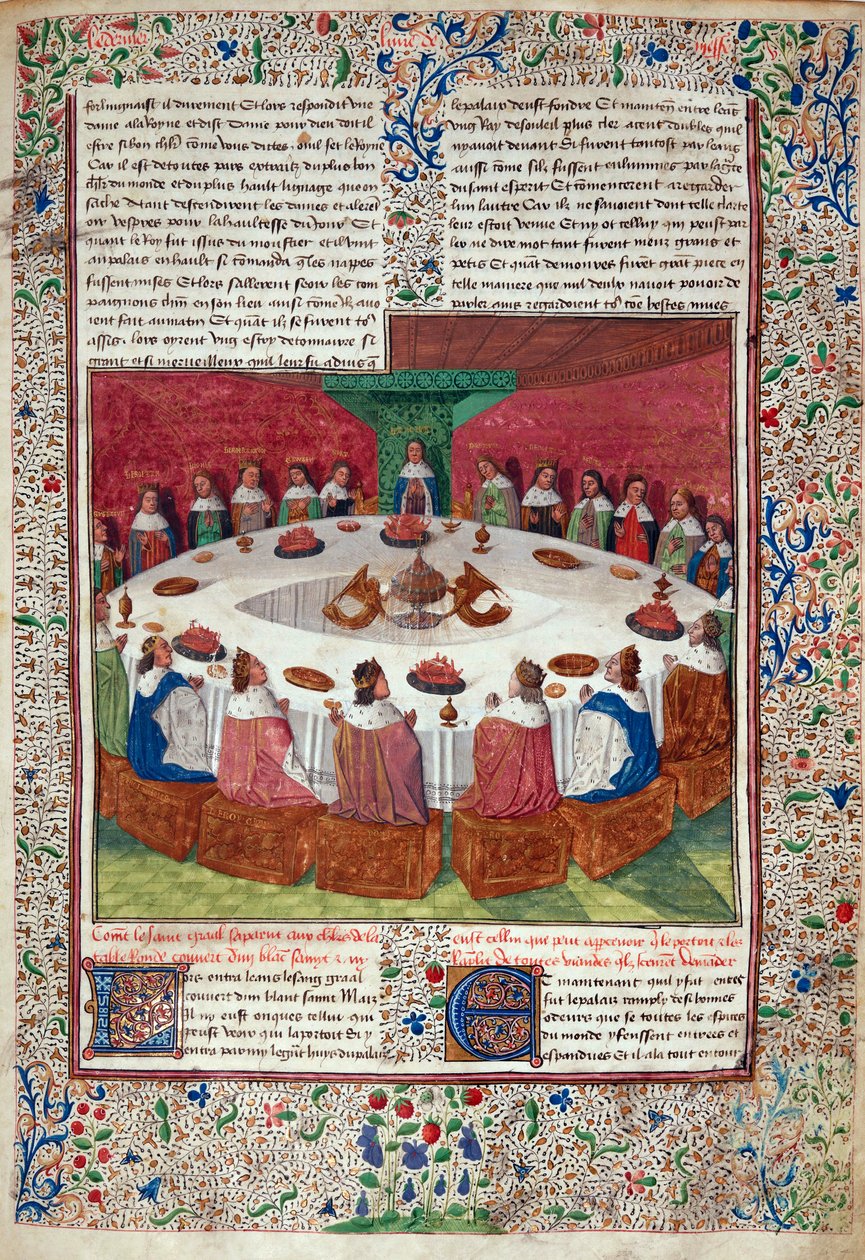 Le dernier
liure de
forlingnaist il durement Et lors respondit vne
dame a la Royne et dist Dame pour dieu doit il
estre si bon chlr come vous dites ouil
Car il est de toutes pars extrait du plus bon
chlr du monde et du plus hault lignage que on
sache Atant descendirent les dames et aleret
oir vespres pour la haultesse du iour Et
quant le Roy fut issus du moustier et il vint
au palais en hault si comanda q les nappes
fussent mises Et lors sallerent seoir les com
paignons chm en son lieu aussi come ilz auo
ient fait au matin Et quat ilz se furent to9
assis lors oyrent vng de tonnoirre si
grant et si merueilleux quil leur fu aduis q
le palaix deust fondre Et mainten entra leas
vng Ray de souleil plus cler a cent doubles quil
nyauoit deuant Si furent tantost par leans
aussi come silz fussent enlumines par la gce
du saint esperit Et comencerent a regarder
lun lautre Car ilz ne sauoient dont telle clarte
leur estoit venue Et ny ot celluy qui peust par
ler ne dire mot tant furent meuz grans et
petis Et quat demoures furet grat piece en
telle maniere que nul deulx nauoit pouoir de
parler ains regardoient to9 coe bestes mues
Comt le saint graal saparut aux chlrs de la
table Ronde couuert dun blanc samyt
Lors entra leans le sang graal
couuert dun blant samit Maiz
Il ny eust onques cellui qui
peust veoir qui la portoit Si y
entra par my le grant huys du palaix
eust cellui que peut appceuoir q le portoit & les
Raplit de toutes viandes
Et maintenant quil y fut entres
fut le palaix ramply de si bonnes
odeurs que se toutes les espices
du monde y feussent entrees et
espandues Et il ala tout entour